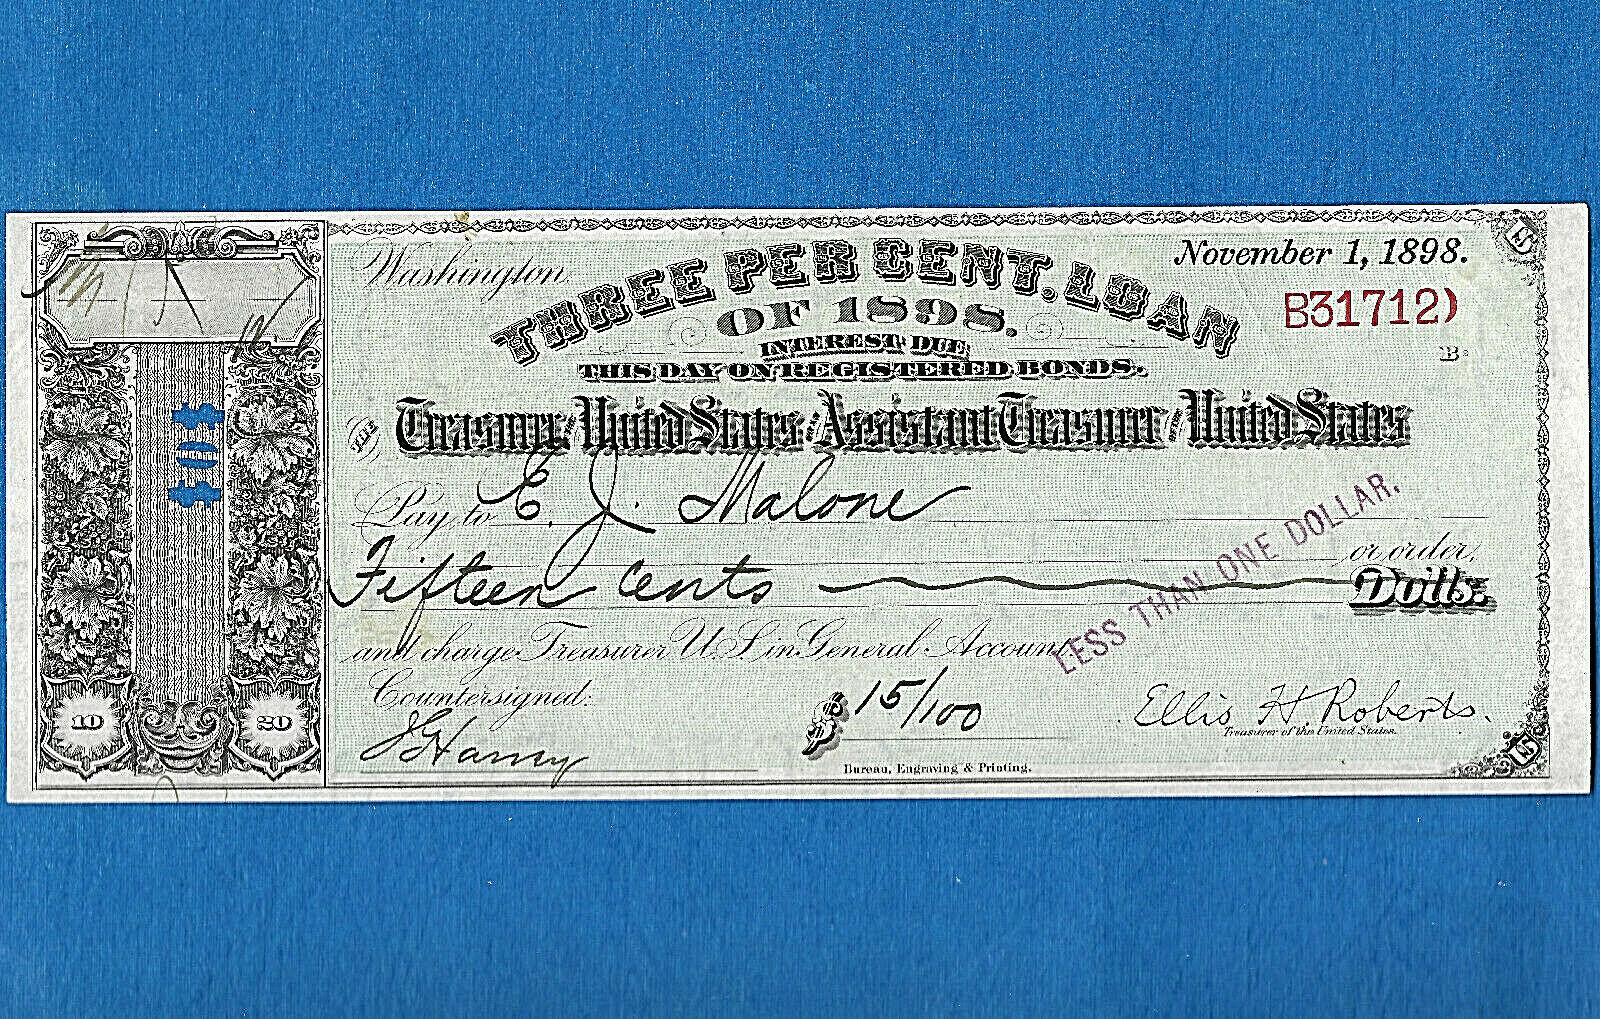 Washington,
November 1, 1898.
THREE PER CENT. LOAN
OF 1898.
B31712)
INTEREST DUE
B
THIS DAY ON REGISTERED BONDS.
THE Treasurer of United States or Assistant Treasurer of United States
Pay to E. J. Malone
or order,
Fifteen cents Dolls.
LESS THAN ONE DOLLAR.
and charge Treasurer U.S. in General Account.
Countersigned:
$ 15/100
Ellis H. Roberts.
Treasurer of the United States.
Bureau, Engraving & Printing.
$10$
10
20
US
US